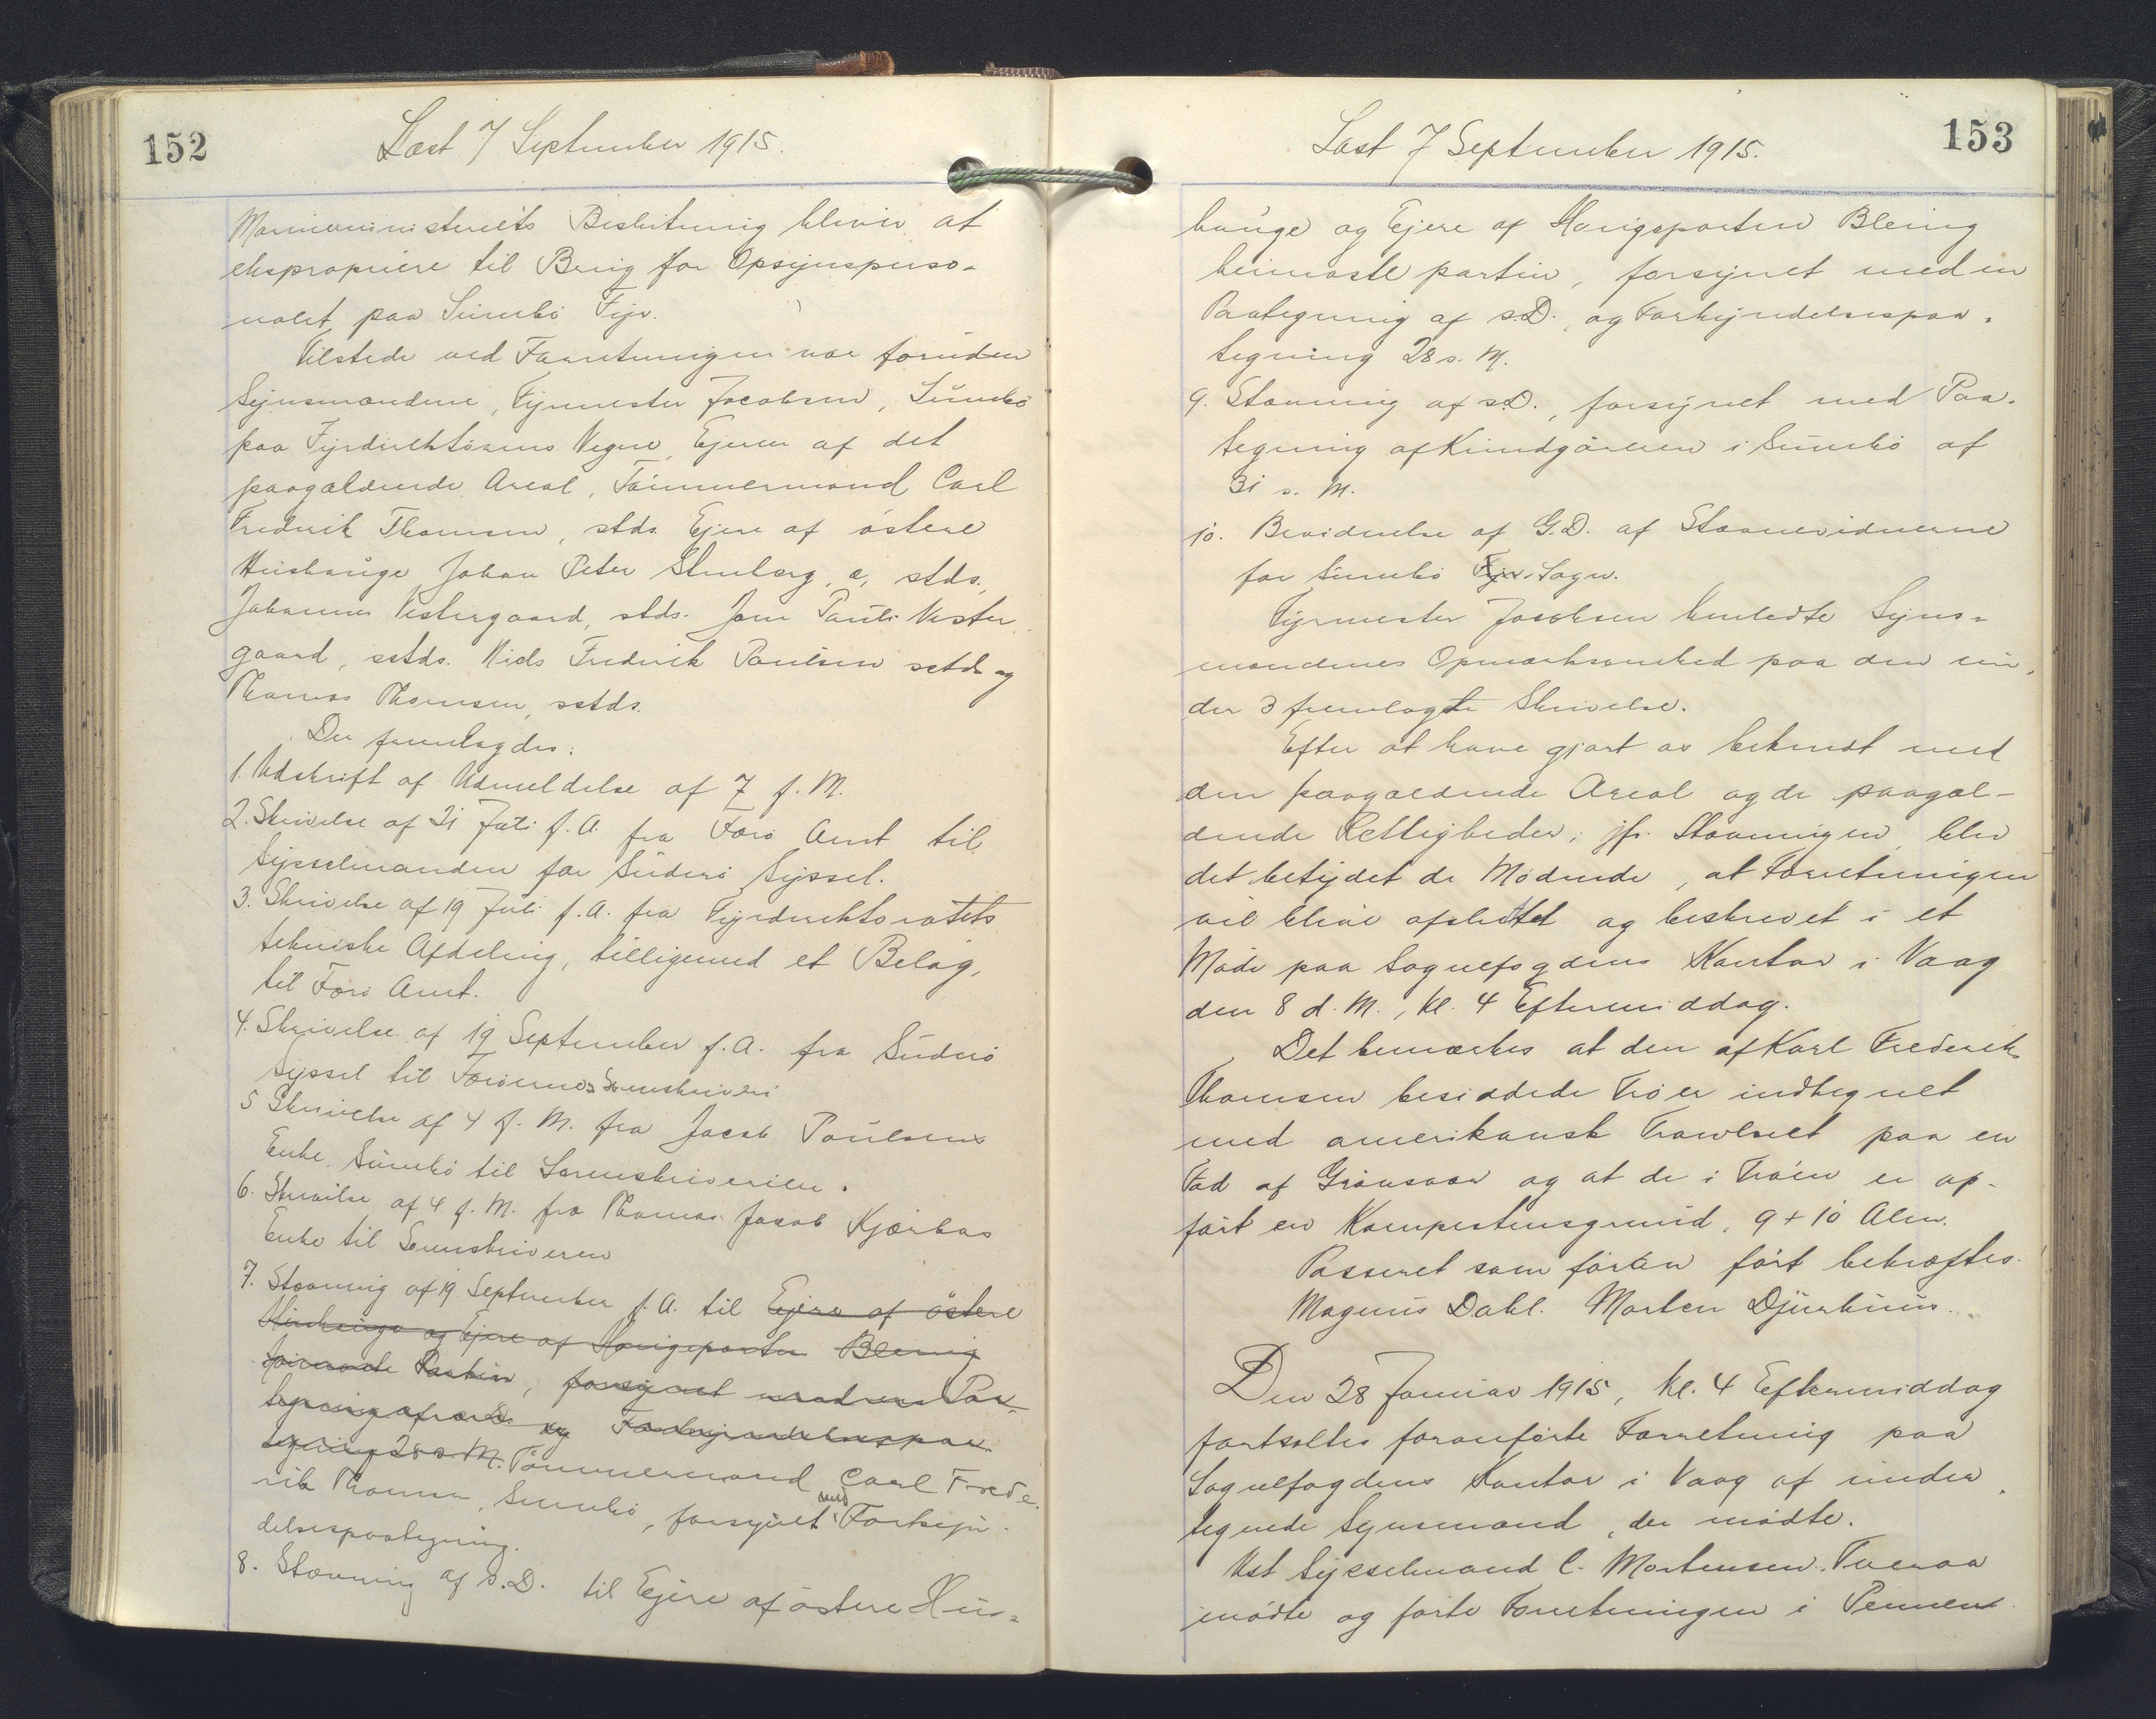 152
Læst 7 September 1915.
Marineministeriets Beslutning bliver at
ekspropriere til Brug for Opsynsperso-
nalet paa Sumbö Fyr.
Tilstede ved Forretningen var foruden
Synsmændene, Fyrmester Jacobsen, Sumbö
paa Fyrdirektörens Vegne, Ejeren af det
paagældende Areal, Tömmermand Carl
Fredrik Thomsen, stds. Ejere af östere
Hushauge Johan Peter stds.
Johannes Vestergaard, stds. Jens Pauli Vester
gaard, sstds. Niels Fredrik Poulsen sstds og
Thomas Thomsen, sstds.
Der fremlagdes:
1. Udskrift af Udmeldelse af 7 f. M.
2. Skrivelse af 21 Juli f. A. fra Færö Amt til
Sysselmanden for Suderö Syssel.
3. Skrivelse af 19 Juli f. A. fra Fyrdirektoratets
tekniske Afdeling, tilligemed et Belag,
til Færö Amt.
4. Skrivelse af 19 September f. A. fra Suderö
Syssel til Færöernes Sorenskriveri
5 Skrivelse af 4 f. M. fra Jacob Poulsens
Enke, Sumbö til Sorenskriveriet.
6. Skrivelse af 4 f. M. fra Thomas Jacob Kjærbos
Enke til Sorenskriveren
7. Stævning af 19 September f. A. til Ejere af östere
Hushauge og Ejere af Haugeparten Blening
heimaste Partin, forsynet med en Paa-
tegning af s. D. og Forkyndelsespaa-
tegning 28 s. M. Tömmermand Carl Frede-
rik Thomsen, Sumbö, forsynet med Forkyn-
delsespaategning.
8. Stævning af s. D. til Ejere af östere Hus-
153
Læst 7 September 1915.
hauge og Ejere af Haugsparten Blening
heimaste partin, forsynet med en
Paategning af s. D., og Forkyndelsespaa-
tegning 28 s. M.
9. Stævning af s. D., forsynet med Paa-
tegning af Kundgörelsen i Sumbö af
31 s. M.
10. Bevidnelse af G. D. af Stævnevidnerne
for Sumbö Fyr. Sogn.
Fyrmester Jacobsen henledte Syns-
mændenes Opmærksomhed paa den un-
der 3 fremlagte Skrivelse.
Efter at have gjort os bekendt med
den paagældende Areal og de paagæl-
dende Rettigheder, jfr. Stævningen, blev
det betydet de Mödende, at Forretningen
vil blive afsluttet og beskrevet i et
Möde paa Sognefogdens Kontor i Vaag
den 8 d. M., Kl. 4 Eftermiddag.
Det bemærkes at den af Karl Frederik
Thomsen besiddede Trö er indhegnet
med amerikansk Traadnet paa en
Fod af Grönsvær og at de i Tröen er op-
fört en Kampestensgrund, 9 + 10 Alen.
Passeret som foran fört bekræftes.
Magnus Dahl. Morten Djurhuus.
Den 28 Januar 1915, Kl. 4 Eftermiddag
fortsattes foranförte Forretning paa
Sognefogdens Kontor i Vaag af under
tegnede Synsmænd, der mödte.
Kst. Sysselmand C. Mortensen, Tveraa
mödte og förte Forretningen i Pennen